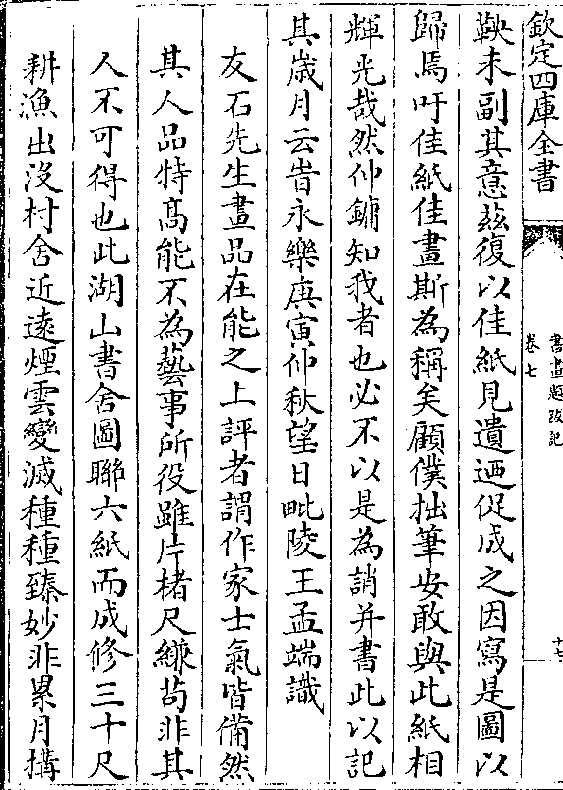 欽定四庫全書
書畫題跋記
卷七
十七
鞅未副其意茲復以佳紙見遺迺促成之因寫是圖以
歸焉吁佳紙佳畫斯為稱矣顧僕拙筆安敢與此紙相
輝光哉然仲鏞知我者也必不以是為誚并書此以記
其歲月云旹永樂庚寅仲秋望日毗陵王孟端識
友石先生畫品在能之上評者謂作家士氣皆備然
其人品特髙能不為藝事所役雖片楮尺縑苟非其
人不可得也此湖山書舍圖聯六紙而成修三十尺
耕漁出沒村舍近遠煙雲變滅種種臻妙非累月搆